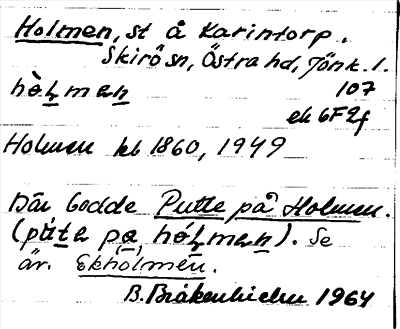 Holmen, st å Karintorp.
Skirö sn, Östra hd, Jönk. l.
hòlmen 107
ek 6F2f
Holmen kb 1860, 1949
Där bodde Putte på Holmen.
(pùtẹ pa hólmen). Se
äv. Ekholmen.
B. Bråkenhielm 1964